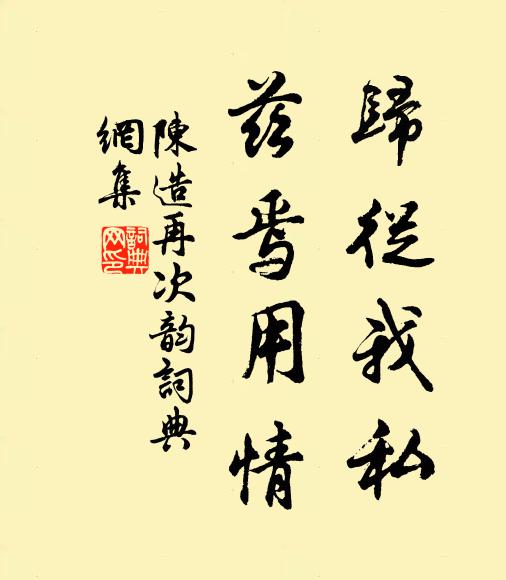 歸從我私
茲焉用情
陳造再次韵詞典
網集
詞典網印